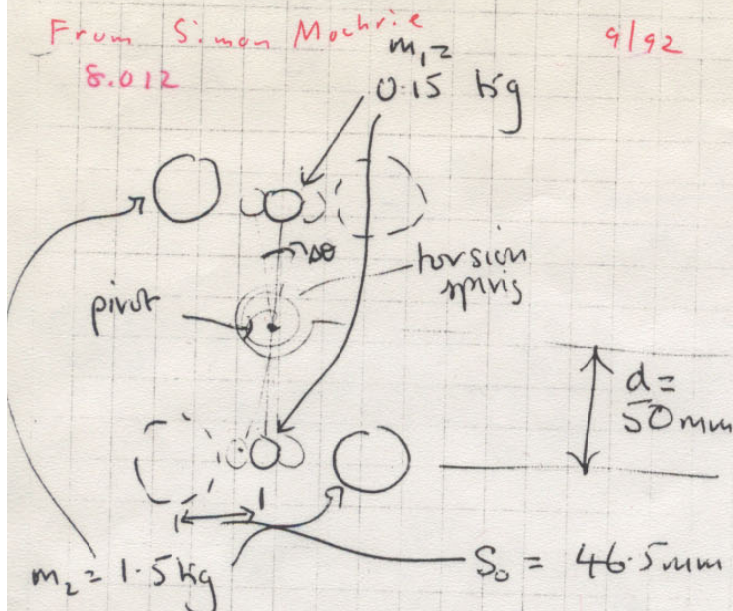 From Simon Mochrie 9/92
8.012
m₁=
0.15 kg
Δθ
torsion
pivot
d=
50mm
m₂ = 1.5 kg
S₀ = 46.5mm